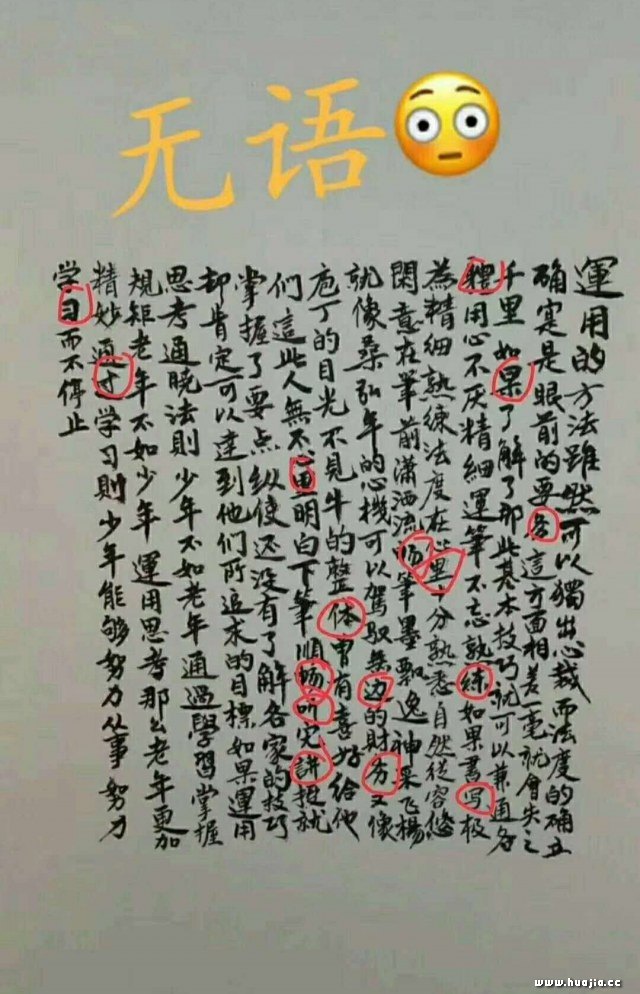 无语
運用的方法雖然可以獨出心裁而法度的确立
确寔是眼前的要务這方面相差一毫就會失之
千里如果了解了那些基本技巧就可以兼通各
種用心不厌精細運筆不忘熟練如果書写极
為精细熟练法度在心里十分熟悉自然從容悠
閑意在筆前潇洒流畅筆墨飘逸神采飞楊
就像桑弘年的心機可以駕馭無边的財务又像
庖丁的目光不見牛的整体曾有喜好给他
們這些人無不一里明白下筆順暢听完講述就
掌握了要点纵使还没有了解各家的技巧
却肯定可以達到他们所追求的目標如果運用
思考通晓法則少年不如老年通過學習掌握
規矩老年不如少年運用思考那么老年更加
精妙通过学习則少年能够努力从事努力
学习而不停止
www.huajia.cc